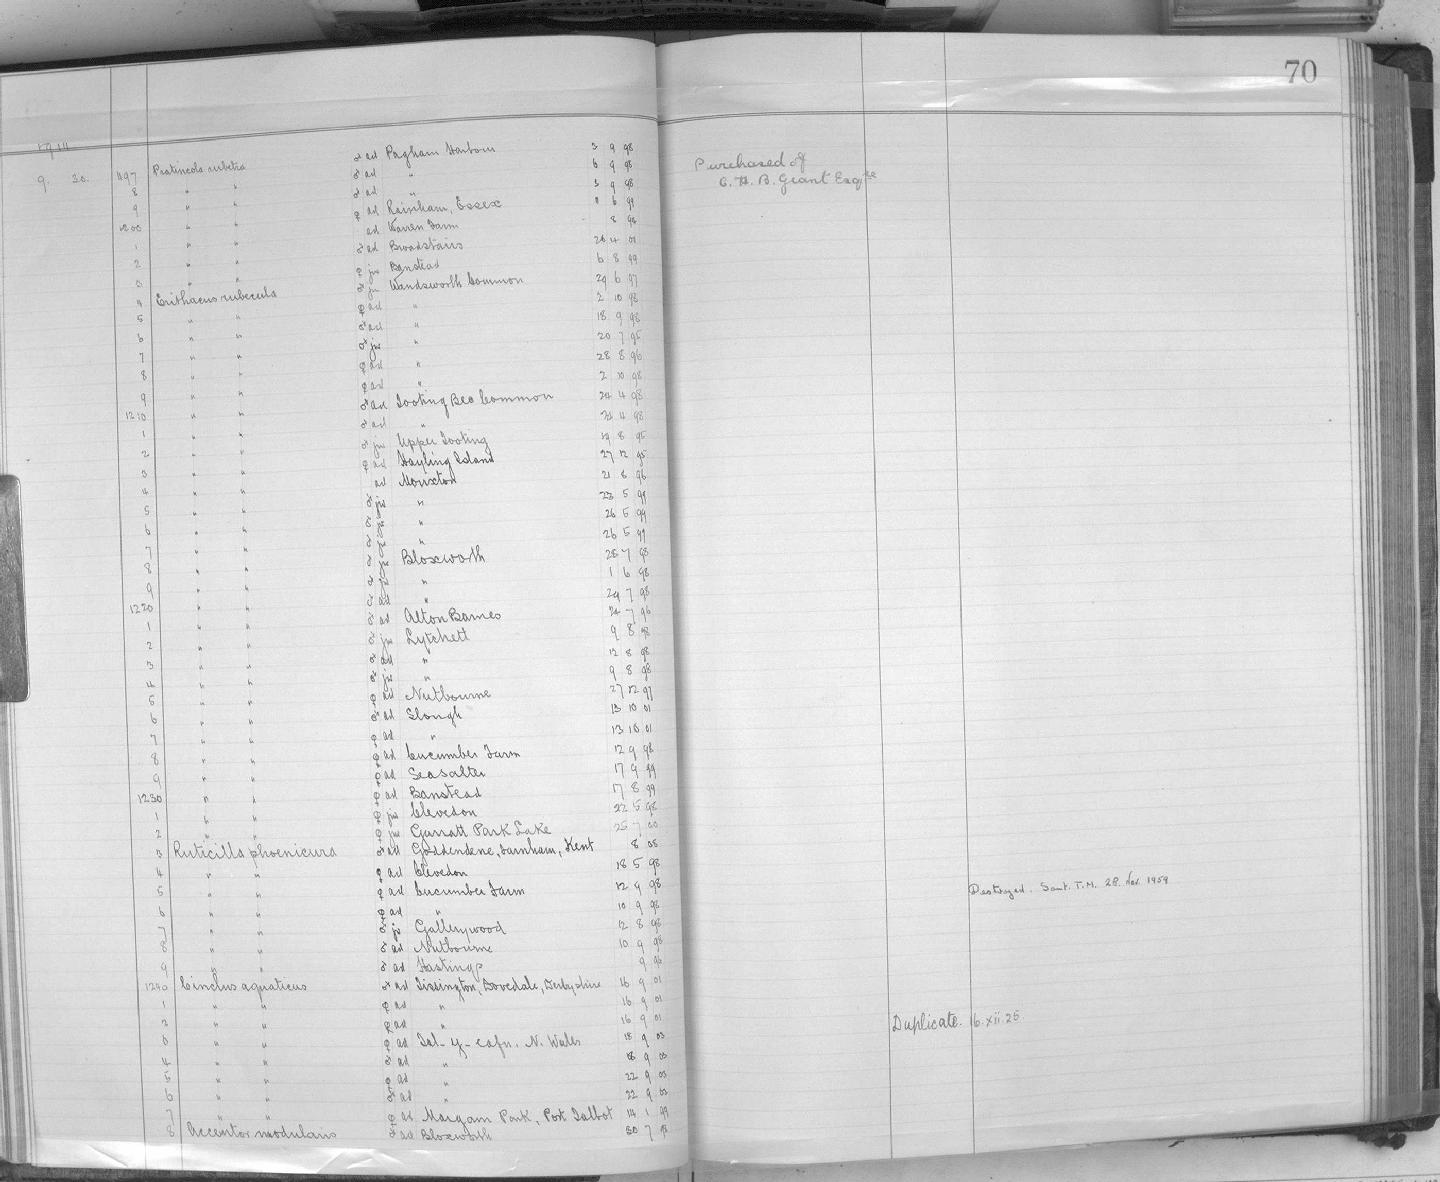 70
9. 30. 1197 Pratincola rubetra ♂ ad Pagham Harbour 3 9 98 Purchased of
8 " " ♂ ad " 6 9 98 C. H. B. Grant Esqre
9 " " ♂ ad " 3 9 98
1200 " " ♀ ad Rainham, Essex 6 99
1 " " ad Warren Farm 8 98
2 " " ♂ ad Broadstairs 26 4 01
3 " " ♀ juv Banstead 6 8 99
4 Erithacus rubecula ♂ juv Wandsworth Common 29 6 97
5 " " ♀ ad " 2 10 98
6 " " ♂ ad " 18 9 98
7 " " ♂ juv " 20 7 95
8 " " ♀ ad " 28 8 96
9 " " ♀ ad " 2 10 98
1210 " " ♂ ad Tooting Bec Common 24 4 98
1 " " ♂ ad " 24 4 98
2 " " ♂ juv Upper Tooting 19 8 95
3 " " ♀ ad Hayling Island 27 12 95
4 " " ad Monxton 21 8 96
5 " " ♂ juv " 23 5 99
6 " " ♂ juv " 26 5 99
7 " " ♂ juv " 26 5 99
8 " " ♂ juv Bloxworth 28 7 98
9 " " ♂ juv " 1 6 98
1220 " " ♂ ad " 29 7 98
1 " " ♂ ad Alton Barnes 24 7 96
2 " " ♂ juv Lytchett 9 8 98
3 " " ♂ ad " 12 8 98
4 " " ♂ juv " 9 8 98
5 " " ♀ ad Nutbourne 27 12 97
6 " " ♂ ad Slough 13 10 01
7 " " ♀ ad " 13 10 01
8 " " ♀ ad Cucumber Farm 12 9 98
9 " " ♀ ad Seasalter 17 9 99
1230 " " ♀ ad Banstead 17 8 99
1 " " ♀ juv Clevedon 22 5 98
2 " " ♀ juv Garratt Park Lake 25 7 00
3 Ruticilla phoenicura ♂ ad Goddendene, Farnham, Kent 8 05
4 " " ♀ ad Clevedon 18 5 98
5 " " ♀ ad Cucumber Farm 12 9 98 Destroyed. 28. Nov. 1959
6 " " ♀ ad " 10 9 98
7 " " ♂ jv Galleywood 12 8 98
8 " " ♂ ad Nutbourne 10 9 98
9 " " ♂ ad Hastings 9 96
1240 Cinclus aquaticus ♂ ad Tissington, Dovedale, Derbyshire 16 9 01
1 " " ♀ ad " 16 9 01
2 " " ♀ ad " 16 9 01 Duplicate. 16.xii.25.
3 " " ♀ ad Tal-y-cafn. N. Wales 18 9 03
4 " " ♂ ad " 18 9 03
5 " " ♀ ad " 22 9 03
6 " " ♂ ad " 22 9 03
7 " " ♀ ad Margam Park, Port Talbot 14 1 99
8 Accentor modularis ♂ ad Bloxworth 30 7 98